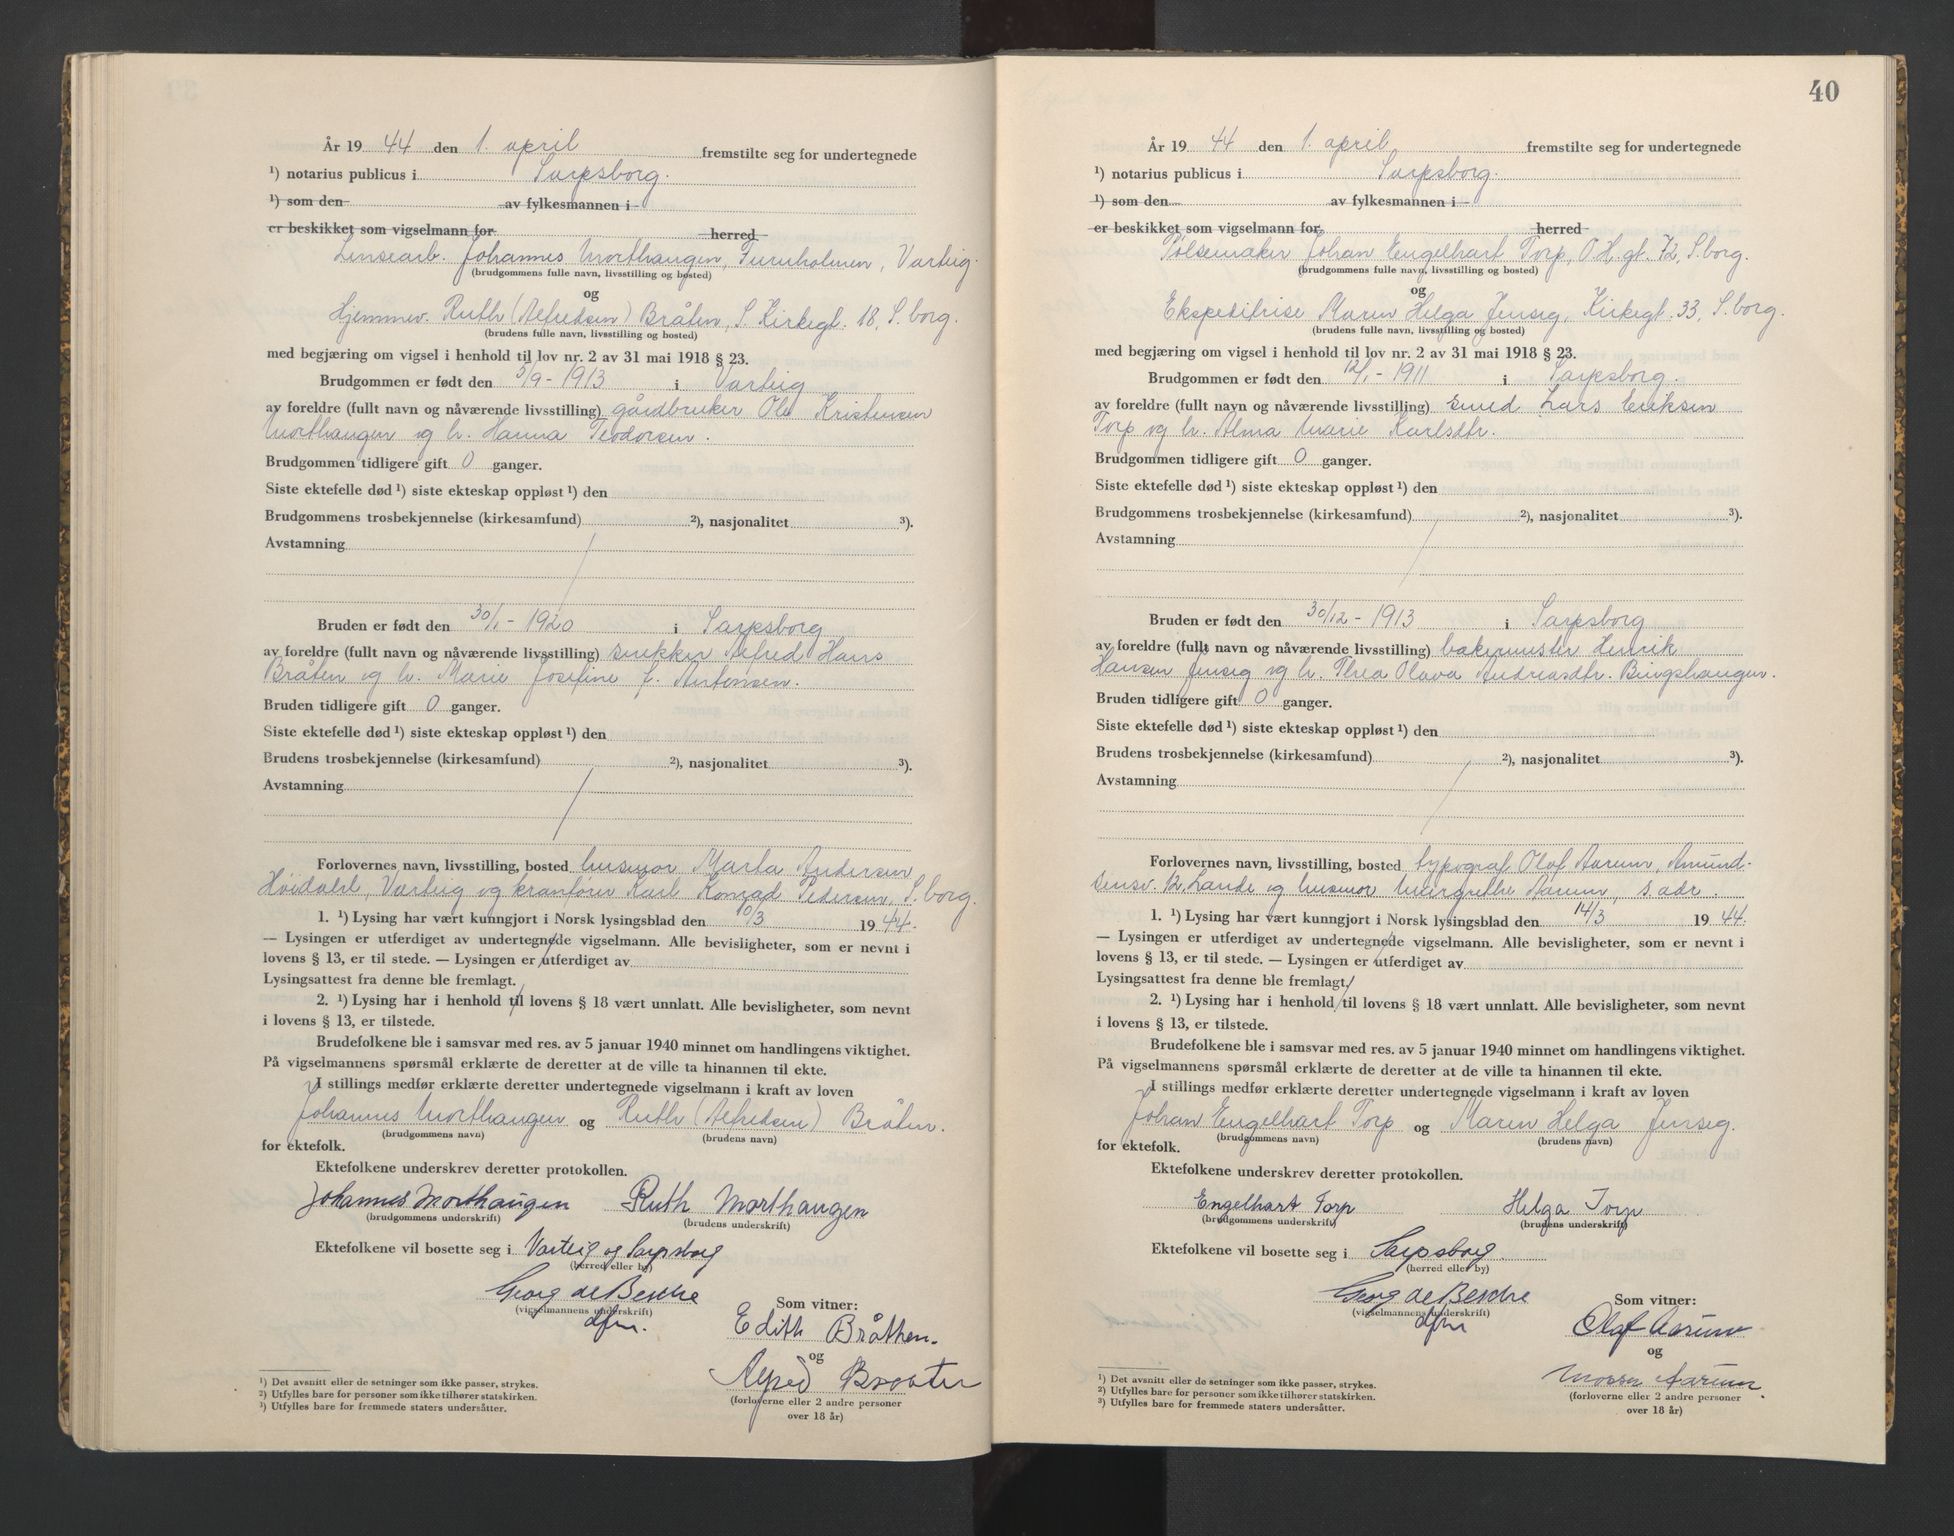 År 19 44 den 1. april fremstilte seg for undertegnede
¹) notarius publicus i Sarpsborg.
¹) som den av fylkesmannen i
er beskikket som vigselmann for herred
Lensearb. Johannes Morthaugen, Furuholmen, Varteig.
(brudgommens fulle navn, livsstilling og bosted)
og
Hjemmev. Ruth (Alfredsen) Bråten, S. Kirkegt. 18, S.borg.
(brudens fulle navn, livsstilling og bosted)
med begjæring om vigsel i henhold til lov nr. 2 av 31 mai 1918 § 23.
Brudgommen er født den 5/9 - 1913 i Varteig
av foreldre (fullt navn og nåværende livsstilling) gårdbruker Ole Kristensen
Morthaugen og h. Hanna Teodorsen.
Brudgommen tidligere gift 0 ganger.
Siste ektefelle død ¹) siste ekteskap oppløst ¹) den
Brudgommens trosbekjennelse (kirkesamfund) ²), nasjonalitet ³).
Avstamning
Bruden er født den 30/1 - 1920 i Sarpsborg
av foreldre (fullt navn og nåværende livsstilling) snekker Alfred Hans
Bråten og h. Marie Josefine f. Antonsen.
Bruden tidligere gift 0 ganger.
Siste ektefelle død ¹) siste ekteskap oppløst ¹) den
Brudens trosbekjennelse (kirkesamfund) ²), nasjonalitet ³).
Avstamning
Forlovernes navn, livsstilling, bosted husmor Marta Andersen
Høidahl, Varteig og kranfører Karl Konrad Pedersen, S.borg.
1. ¹) Lysing har vært kunngjort i Norsk lysingsblad den 10/3 19 44.
— Lysingen er utferdiget av undertegnede vigselmann. Alle bevisligheter, som er nevnt i
lovens § 13, er til stede. — Lysingen er utferdiget av
Lysingsattest fra denne ble fremlagt.
2. ¹) Lysing har i henhold til lovens § 18 vært unnlatt. Alle bevisligheter, som nevnt
i lovens § 13, er tilstede.
Brudefolkene ble i samsvar med res. av 5 januar 1940 minnet om handlingens viktighet.
På vigselmannens spørsmål erklærte de deretter at de ville ta hinannen til ekte.
I stillings medfør erklærte deretter undertegnede vigselmann i kraft av loven
Johannes Morthaugen og Ruth (Alfredsen) Bråten.
(brudgommens navn) (brudens navn)
for ektefolk.
Ektefolkene underskrev deretter protokollen.
Johannes Morthaugen Ruth Morthaugen
(brudgommens underskrift) (brudens underskrift)
Ektefolkene vil bosette seg i Varteig og Sarpsborg
(herred eller by)
Georg de Besche
(vigselmannens underskrift)
dfm.
Som vitner:
Edith Bråthen.
og
Alfred
(forloverne eller 2 andre personer
over 18 år)
¹) Det avsnitt eller de setninger som ikke passer, strykes.
²) Utfylles bare for personer som ikke tilhører statskirken.
³) Utfylles bare for fremmede staters undersåtter.
40
År 19 44 den 1. april fremstilte seg for undertegnede
¹) notarius publicus i Sarpsborg.
¹) som den av fylkesmannen i
er beskikket som vigselmann for herred
Pølsemaker Johan Engelhart Torp, O.H.gt. 72, S.borg.
(brudgommens fulle navn, livsstilling og bosted)
og
Ekspeditrise Maren Helga Jenseg, Kirkegt. 33, S.borg.
(brudens fulle navn, livsstilling og bosted)
med begjæring om vigsel i henhold til lov nr. 2 av 31 mai 1918 § 23.
Brudgommen er født den 12/1 - 1911 i Sarpsborg.
av foreldre (fullt navn og nåværende livsstilling) smed Lars Eriksen
Torp og h. Alma Marie Karlsdtr.
Brudgommen tidligere gift 0 ganger.
Siste ektefelle død ¹) siste ekteskap oppløst ¹) den
Brudgommens trosbekjennelse (kirkesamfund) ²), nasjonalitet ³).
Avstamning
Bruden er født den 30/12 - 1913 i Sarpsborg
av foreldre (fullt navn og nåværende livsstilling) bakermester Henrik
Hansen Jenseg og h. Thea Olava Andreasdtr. Bingshaugen.
Bruden tidligere gift 0 ganger.
Siste ektefelle død ¹) siste ekteskap oppløst ¹) den
Brudens trosbekjennelse (kirkesamfund) ²), nasjonalitet ³).
Avstamning
Forlovernes navn, livsstilling, bosted typograf Olof Aarum, Amund-
sensv. 12, Lande og husmor Margrethe Aarum, s. adr.
1. ¹) Lysing har vært kunngjort i Norsk lysingsblad den 14/3 19 44.
— Lysingen er utferdiget av undertegnede vigselmann. Alle bevisligheter, som er nevnt i
lovens § 13, er til stede. — Lysingen er utferdiget av
Lysingsattest fra denne ble fremlagt.
2. ¹) Lysing har i henhold til lovens § 18 vært unnlatt. Alle bevisligheter, som nevnt
i lovens § 13, er tilstede.
Brudefolkene ble i samsvar med res. av 5 januar 1940 minnet om handlingens viktighet.
På vigselmannens spørsmål erklærte de deretter at de ville ta hinannen til ekte.
I stillings medfør erklærte deretter undertegnede vigselmann i kraft av loven
Johan Engelhart Torp og Maren Helga Jenseg.
(brudgommens navn) (brudens navn)
for ektefolk.
Ektefolkene underskrev deretter protokollen.
Engelhart Torp Helga Torp
(brudgommens underskrift) (brudens underskrift)
Ektefolkene vil bosette seg i Sarpsborg.
(herred eller by)
Georg de Besche
(vigselmannens underskrift)
dfm
Som vitner:
Olof Aarum
og
Aarum.
(forloverne eller 2 andre personer
over 18 år)
¹) Det avsnitt eller de setninger som ikke passer, strykes.
²) Utfylles bare for personer som ikke tilhører statskirken.
³) Utfylles bare for fremmede staters undersåtter.